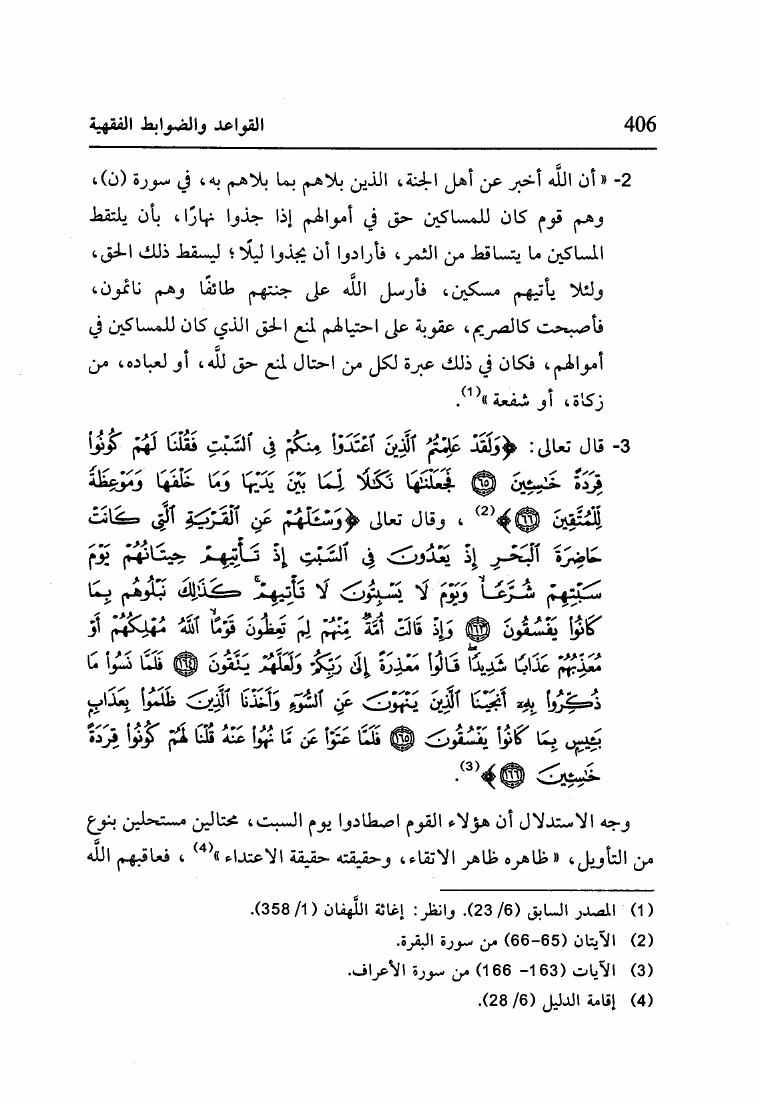 406
القواعد والضوابط الفقهية
2- « أن اللَّه أخبر عن أهل الجنة، الذين بلاهم بما بلاهم به، في سورة (ن)،
وهم قوم كان للمساكين حق في أموالهم إذا جذوا نهارًا، بأن يلتقط
المساكين ما يتساقط من الثمر، فأرادوا أن يجذوا ليلًا؛ ليسقط ذلك الحق،
ولئلا يأتيهم مسكين، فأرسل اللَّه على جنتهم طائفًا وهم نائمون،
فأصبحت كالصريم، عقوبة على احتيالهم لمنع الحق الذي كان للمساكين في
أموالهم، فكان في ذلك عبرة لكل من احتال لمنع حق للَّه، أو لعباده، من
زكاة، أو شفعة »(1).
3- قال تعالى: ﴿وَلَقَدْ عَلِمْتُمُ ٱلَّذِينَ ٱعْتَدَوْا۟ مِنكُمْ فِى ٱلسَّبْتِ فَقُلْنَا لَهُمْ كُونُوا۟
قِرَدَةً خَـٰسِـِٔينَ ٦٥ فَجَعَلْنَـٰهَا نَكَـٰلًا لِّمَا بَيْنَ يَدَيْهَا وَمَا خَلْفَهَا وَمَوْعِظَةً
لِّلْمُتَّقِينَ ٦٦﴾(2) ، وقال تعالى ﴿وَسْـَٔلْهُمْ عَنِ ٱلْقَرْيَةِ ٱلَّتِى كَانَتْ
حَاضِرَةَ ٱلْبَحْرِ إِذْ يَعْدُونَ فِى ٱلسَّبْتِ إِذْ تَأْتِيهِمْ حِيتَانُهُمْ يَوْمَ
سَبْتِهِمْ شُرَّعًا وَيَوْمَ لَا يَسْبِتُونَ لَا تَأْتِيهِمْ ۚ كَذَٰلِكَ نَبْلُوهُم بِمَا
كَانُوا۟ يَفْسُقُونَ ١٦٣ وَإِذْ قَالَتْ أُمَّةٌ مِّنْهُمْ لِمَ تَعِظُونَ قَوْمًا ٱللَّهُ مُهْلِكُهُمْ أَوْ
مُعَذِّبُهُمْ عَذَابًا شَدِيدًا قَالُوا۟ مَعْذِرَةً إِلَىٰ رَبِّكُمْ وَلَعَلَّهُمْ يَتَّقُونَ ١٦٤ فَلَمَّا نَسُوا۟ مَا
ذُكِّرُوا۟ بِهِۦٓ أَنجَيْنَا ٱلَّذِينَ يَنْهَوْنَ عَنِ ٱلسُّوٓءِ وَأَخَذْنَا ٱلَّذِينَ ظَلَمُوا۟ بِعَذَابٍۭ
بَـِٔيسٍۭ بِمَا كَانُوا۟ يَفْسُقُونَ ١٦٥ فَلَمَّا عَتَوْا۟ عَن مَّا نُهُوا۟ عَنْهُ قُلْنَا لَهُمْ كُونُوا۟ قِرَدَةً
خَـٰسِـِٔينَ ١٦٦﴾(3).
وجه الاستدلال أن هؤلاء القوم اصطادوا يوم السبت، محتالين مستحلين بنوع
من التأويل، « ظاهره ظاهر الاتقاء، وحقيقته حقيقة الاعتداء »(4) ، فعاقبهم اللَّه
(1) المصدر السابق (6/ 23). وانظر: إغاثة اللَّهفان (1/ 358).
(2) الآيتان (65-66) من سورة البقرة.
(3) الآيات (163- 166) من سورة الأعراف.
(4) إقامة الدليل (6/ 28).